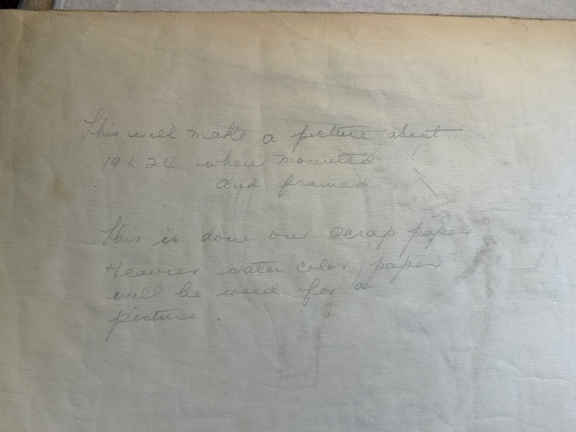 This will make a picture about
19 x 26 when mounted
and framed
This is done on scrap paper
Heavier water color paper
will be used for a
picture.